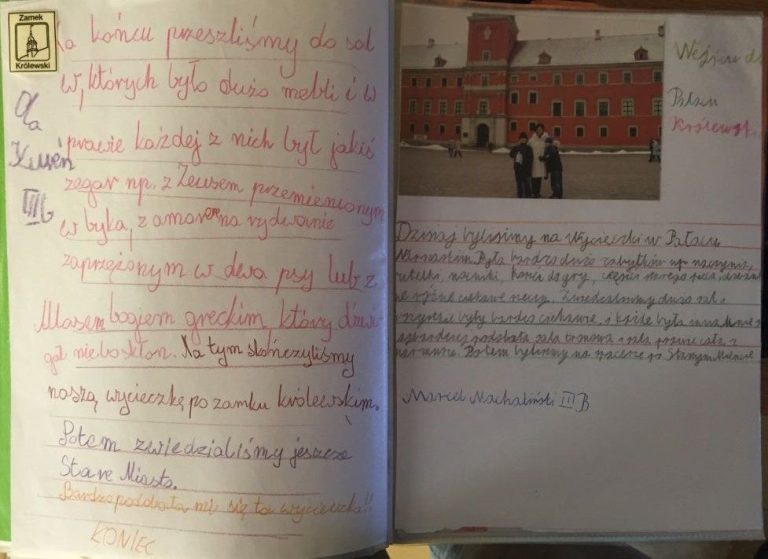 Zamek
Królewski
Na końcu przeszliśmy do sal
w, których było dużo mebli i w
prawie każdej z nich był jakiś
zegar np. z Zeusem przemienionym
w byka, z amorem na rydwanie
zaprzężonym w dwa psy lub z
Atlasem bogiem greckim, który dźwi-
gał nieboskłon. Na tym skończyliśmy
naszą wycieczkę po zamku królewskim.
Potem zwiedzaliśmy jeszcze
Stare Miasto.
Bardzo podobała mi się ta wycieczka!!
KONIEC
Ola
III b
Wejście do
Pałacu
Królewski
Dzisiaj byliśmy na Wycieczki w Pałacu
Była bardzo dużo zabytków np. naczynia,
kości do gry, części starego pieca,
różne ciekawe rzeczy. Zwiedzaliśmy dużo sal i
były bardzo ciekawe, i każde była inna
podobała sala tronowa i sala
Potem byliśmy na spacerze po Starym Mieście
Marcel Machaliński III B